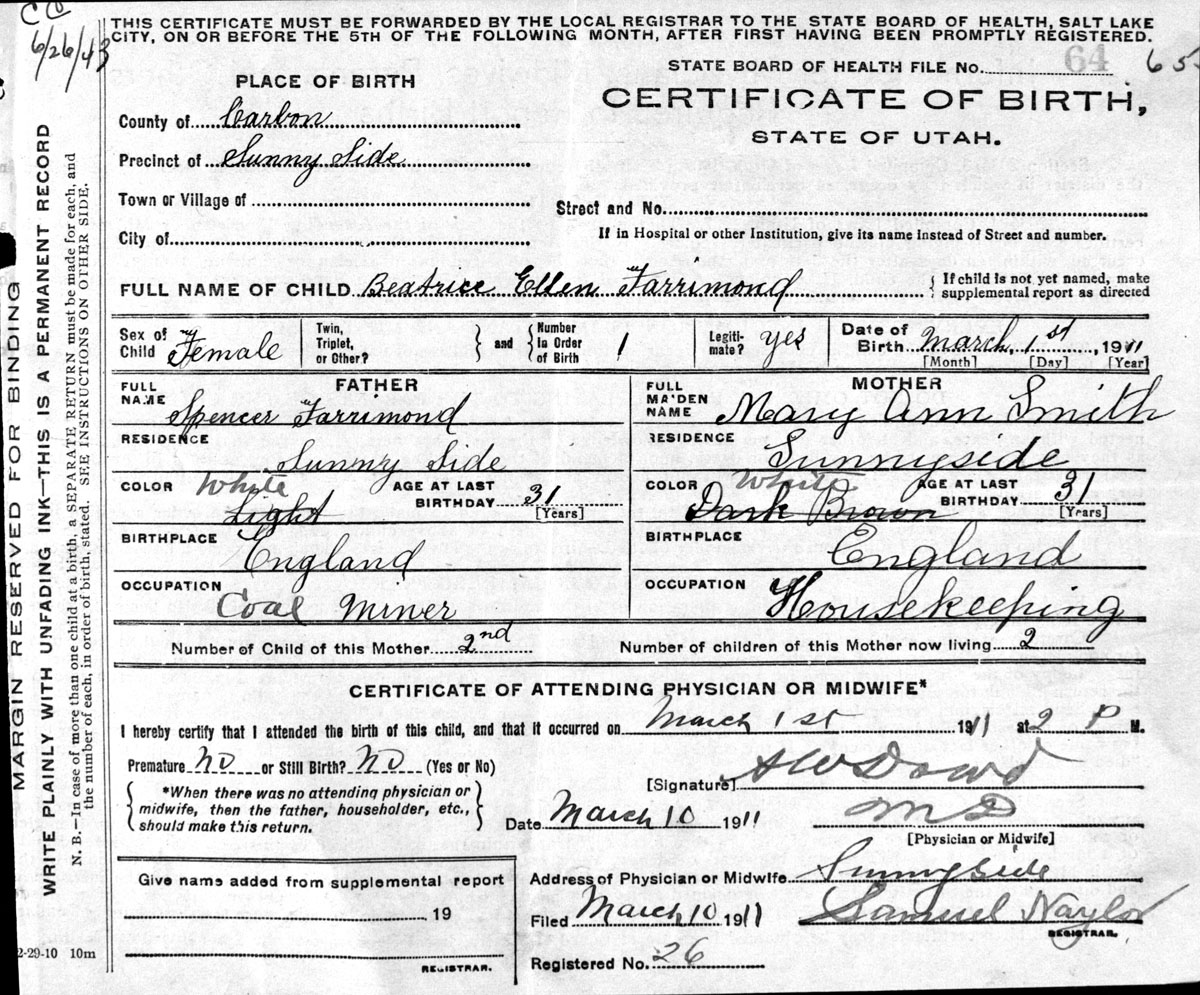 CC
6/26/43
THIS CERTIFICATE MUST BE FORWARDED BY THE LOCAL REGISTRAR TO THE STATE BOARD OF HEALTH, SALT LAKE
CITY, ON OR BEFORE THE 5TH OF THE FOLLOWING MONTH, AFTER FIRST HAVING BEEN PROMPTLY REGISTERED.
STATE BOARD OF HEALTH FILE No. 64 65
PLACE OF BIRTH
CERTIFICATE OF BIRTH,
STATE OF UTAH.
County of Carbon
Precinct of Sunny Side
Town or Village of
Street and No.
City of
If in Hospital or other Institution, give its name Instead of Street and number.
FULL NAME OF CHILD Beatrice Ellen Farrimond { If child is not yet named, make
supplemental report as directed
Sex of Child Female Twin, Triplet, or Other? } and { Number In Order of Birth 1 Legiti-mate? yes Date of Birth March, 1st, 1911
[Month] [Day] [Year]
FATHER MOTHER
FULL NAME Spencer Farrimond FULL MAIDEN NAME Mary Ann Smith
RESIDENCE Sunny Side RESIDENCE Sunnyside
COLOR White Light AGE AT LAST BIRTHDAY 31 [Years] COLOR White Dark Brown AGE AT LAST BIRTHDAY 31 [Years]
BIRTHPLACE England BIRTHPLACE England
OCCUPATION Coal Miner OCCUPATION Housekeeping
Number of Child of this Mother 2nd Number of children of this Mother now living 2
CERTIFICATE OF ATTENDING PHYSICIAN OR MIDWIFE*
I hereby certify that I attended the birth of this child, and that it occurred on March 1st 1911 at 2 P M.
Premature No or Still Birth? No (Yes or No)
[Signature] A W Dowd
*When there was no attending physician or
midwife, then the father, householder, etc.,
should make this return.
Date March 10 1911 M D
[Physician or Midwife]
Give name added from supplemental report
Address of Physician or Midwife Sunnyside
, 19
Filed March 10 1911 Samuel Naylor
REGISTRAR.
REGISTRAR.
Registered No. 26
2-29-10 10m
MARGIN RESERVED FOR BINDING
WRITE PLAINLY WITH UNFADING INK—THIS IS A PERMANENT RECORD
N. B.—In case of more than one child at a birth, a SEPARATE RETURN must be made for each, and
the number of each, in order of birth, stated. SEE INSTRUCTIONS ON OTHER SIDE.